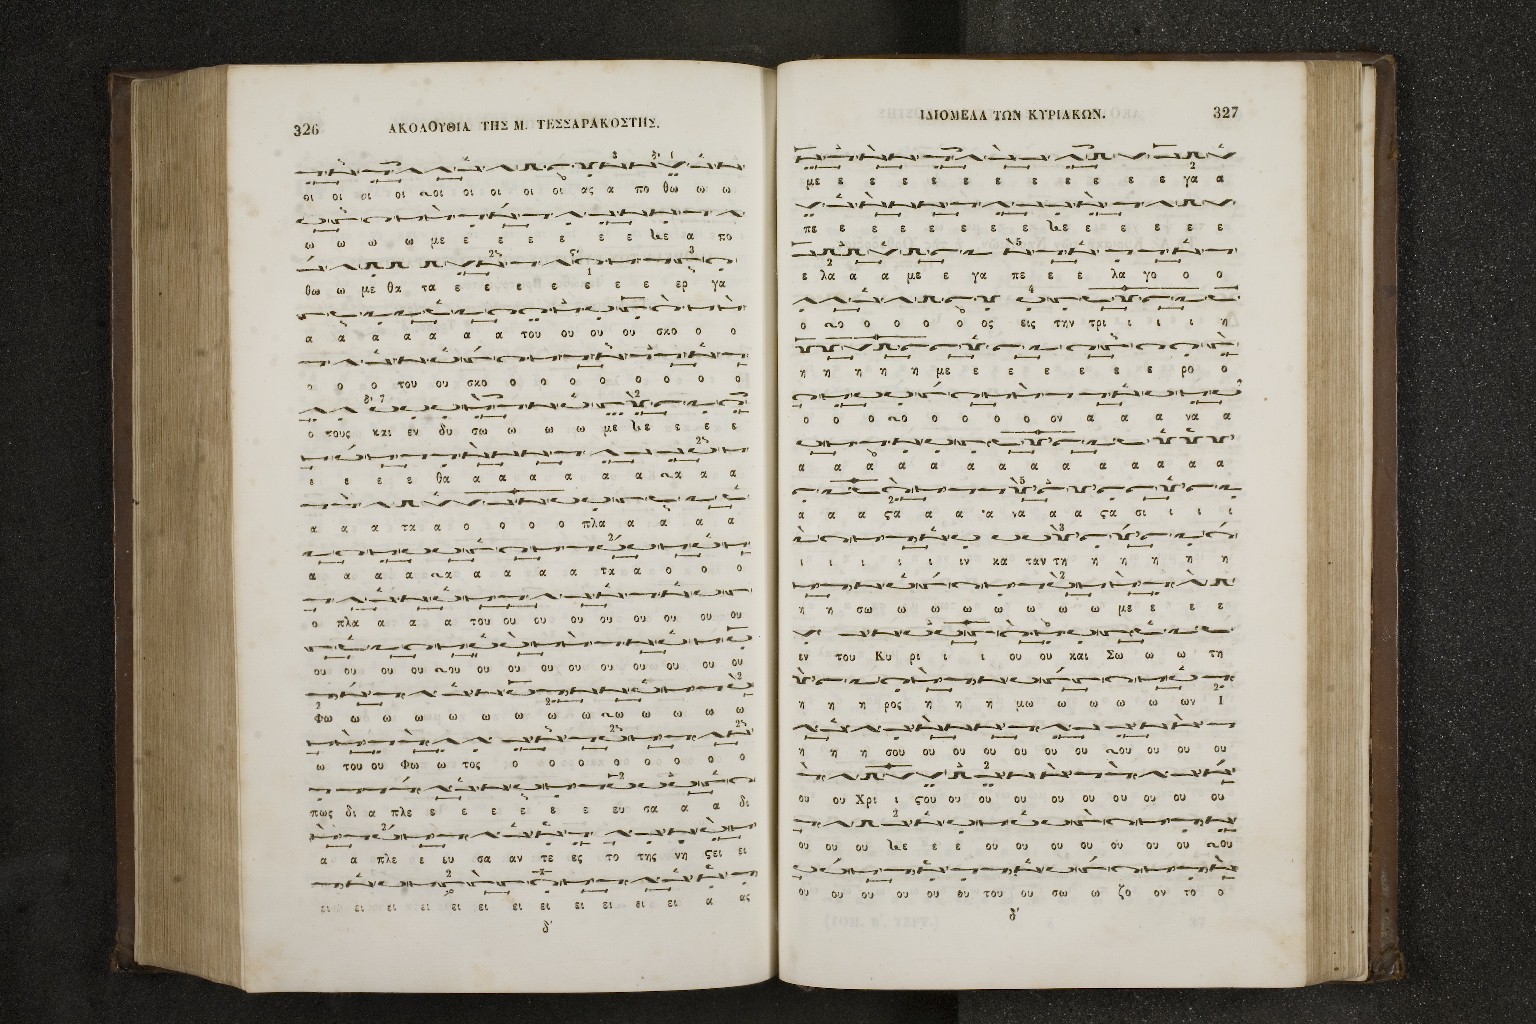 326 ΑΚΟΛΟΥΘΙΑ ΤΗΣ Μ. ΤΕΣΣΑΡΑΚΟΣΤΗΣ.
οι οι οι οι οι οι οι οι οι ας α πο θω ω ω
ω ω ω ω με ε ε ε ε ε ε ε α πο
θω ω με θα τα ε ε ε ε ε ε ε ερ γα
α α α α α α α του ου ου ου σκο ο ο
ο ο ο του ου σκο ο ο ο ο ο ο ο ο
ο τους και εν δυ σω ω ω ω με ε ε ε ε
ε ε ε ε θα α α α α α α α α α
α α α τα α ο ο ο ο πλα α α α α
α α α α α α α α α τα α ο ο ο
ο πλα α α α του ου ου ου ου ου ου ου ου
ου ου ου ου ου ου ου ου ου ου ου ου ου ου
Φω ω ω ω ω ω ω ω ω ω ω ω ω ω
ω του ου Φω ω τος ο ο ο ο ο ο ο ο
πως δι α πλε ε ε ε ε ε ε ευ σα α α δι
α α πλε ε ευ σα αν τε ες το της νη ςει ει
ει ει ει ει ει ει ει ει ει ει ει ει α ας
δ'
ΙΔΙΟΜΕΛΑ ΤΩΝ ΚΥΡΙΑΚΩΝ. 327
με ε ε ε ε ε ε ε ε ε ε ε γα α
πε ε ε ε ε ε ε ε ε ε ε ε ε ε
ε λα α α με ε γα πε ε ε λα γο ο ο
ο ο ο ο ο ο ος εις την τρι ι ι ι η
η η η η η με ε ε ε ε ε ε ε ρο ο
ο ο ο ο ο ο ο ο ον α α α να α
α α α α α α α α α α α α α α
α α α ςα α α α να α α ςα σι ι ι ι
ι ι ι ι ι ιν κα ταν τη η η η η η
η η σω ω ω ω ω ω ω ω με ε ε ε
εν του Κυ ρι ι ι ου ου και Σω ω ω τη
η η η ρος η η η μω ω ω ω ω ων Ι
η η η σου ου ου ου ου ου ου ου ου ου ου
ου ου Χρι ι ςου ου ου ου ου ου ου ου ου ου
ου ου ου ε ε ε ου ου ου ου ου ου ου ου
ου ου ου ου ου του ου σω ω ζο ον το ο
δ'